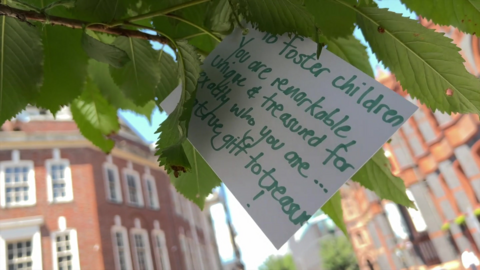 to foster children
You are remarkable
unique & treasured for
exactly who you are...
true gift to treasure
!